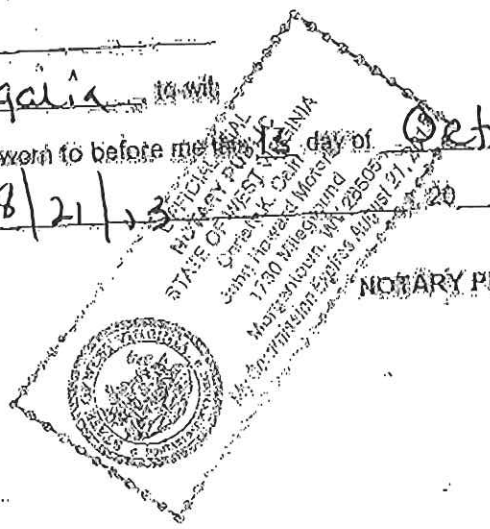 galia to-wit
worn to before me this 1s day of Oct
8/21/13 20
OFFICIAL SEAL
NOTARY PUBLIC
STATE OF WEST VIRGINIA
K. Cain
John Howard Motors
1730 Mileground
Morgantown, WV 26505
My Commission Expires August 21, 2013
NOTARY P